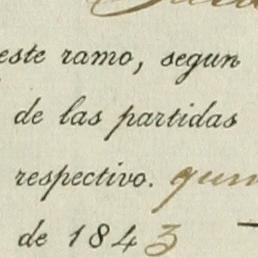 este ramo, segun
de las partidas
respectivo.
de 1843